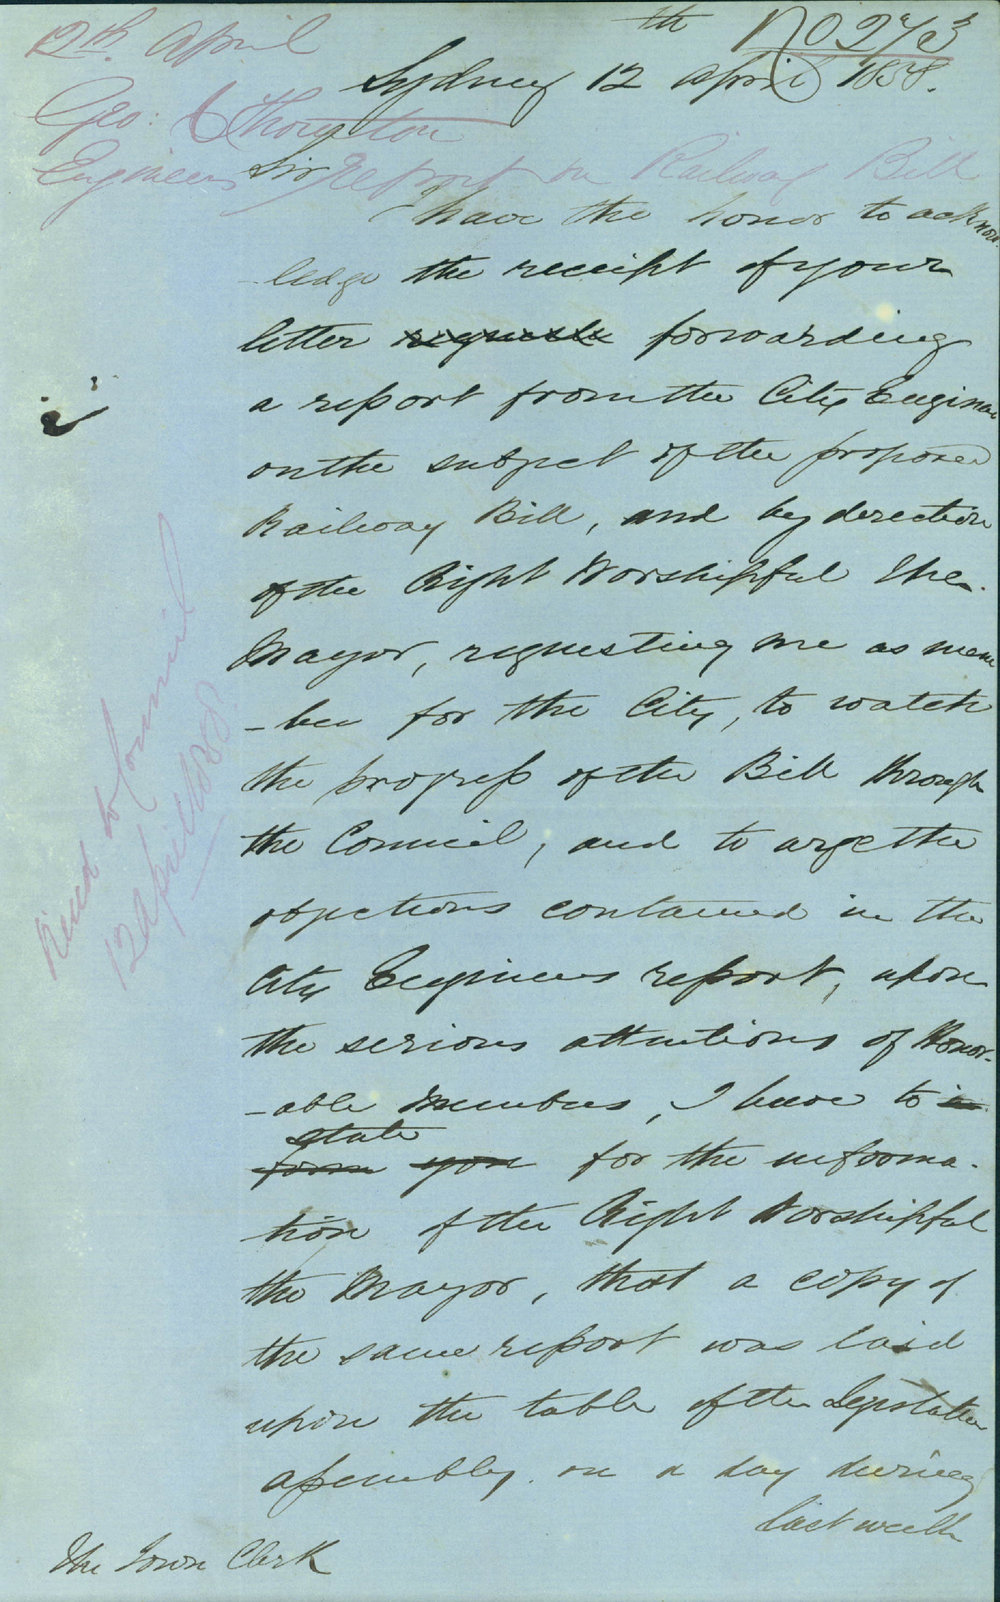 No 273
12th April
Geo: Thornton
Engineers Report on Railway Bill
Sydney 12th April 1858.
Sir
I have the honor to acknow
-ledge the receipt of your
letter forwarding
a report from the City Engineer
on the subject of the proposed
Railway Bill, and by direction
of the Right Worshipful The
Mayor, requesting me as mem
-ber for the City, to watch
the progress of the Bill through
the Council, and to urge the
objections contained in the
City Engineers report, upon
the serious attentions of Honor-
-able Members, I have to in
state
form you for the informa-
tion of the Right Worshipful
the Mayor, that a copy of
the same report was laid
upon the table of the Legislative
Assembly on a day during
last week
The Town Clerk
Read to Council
12 April 1858